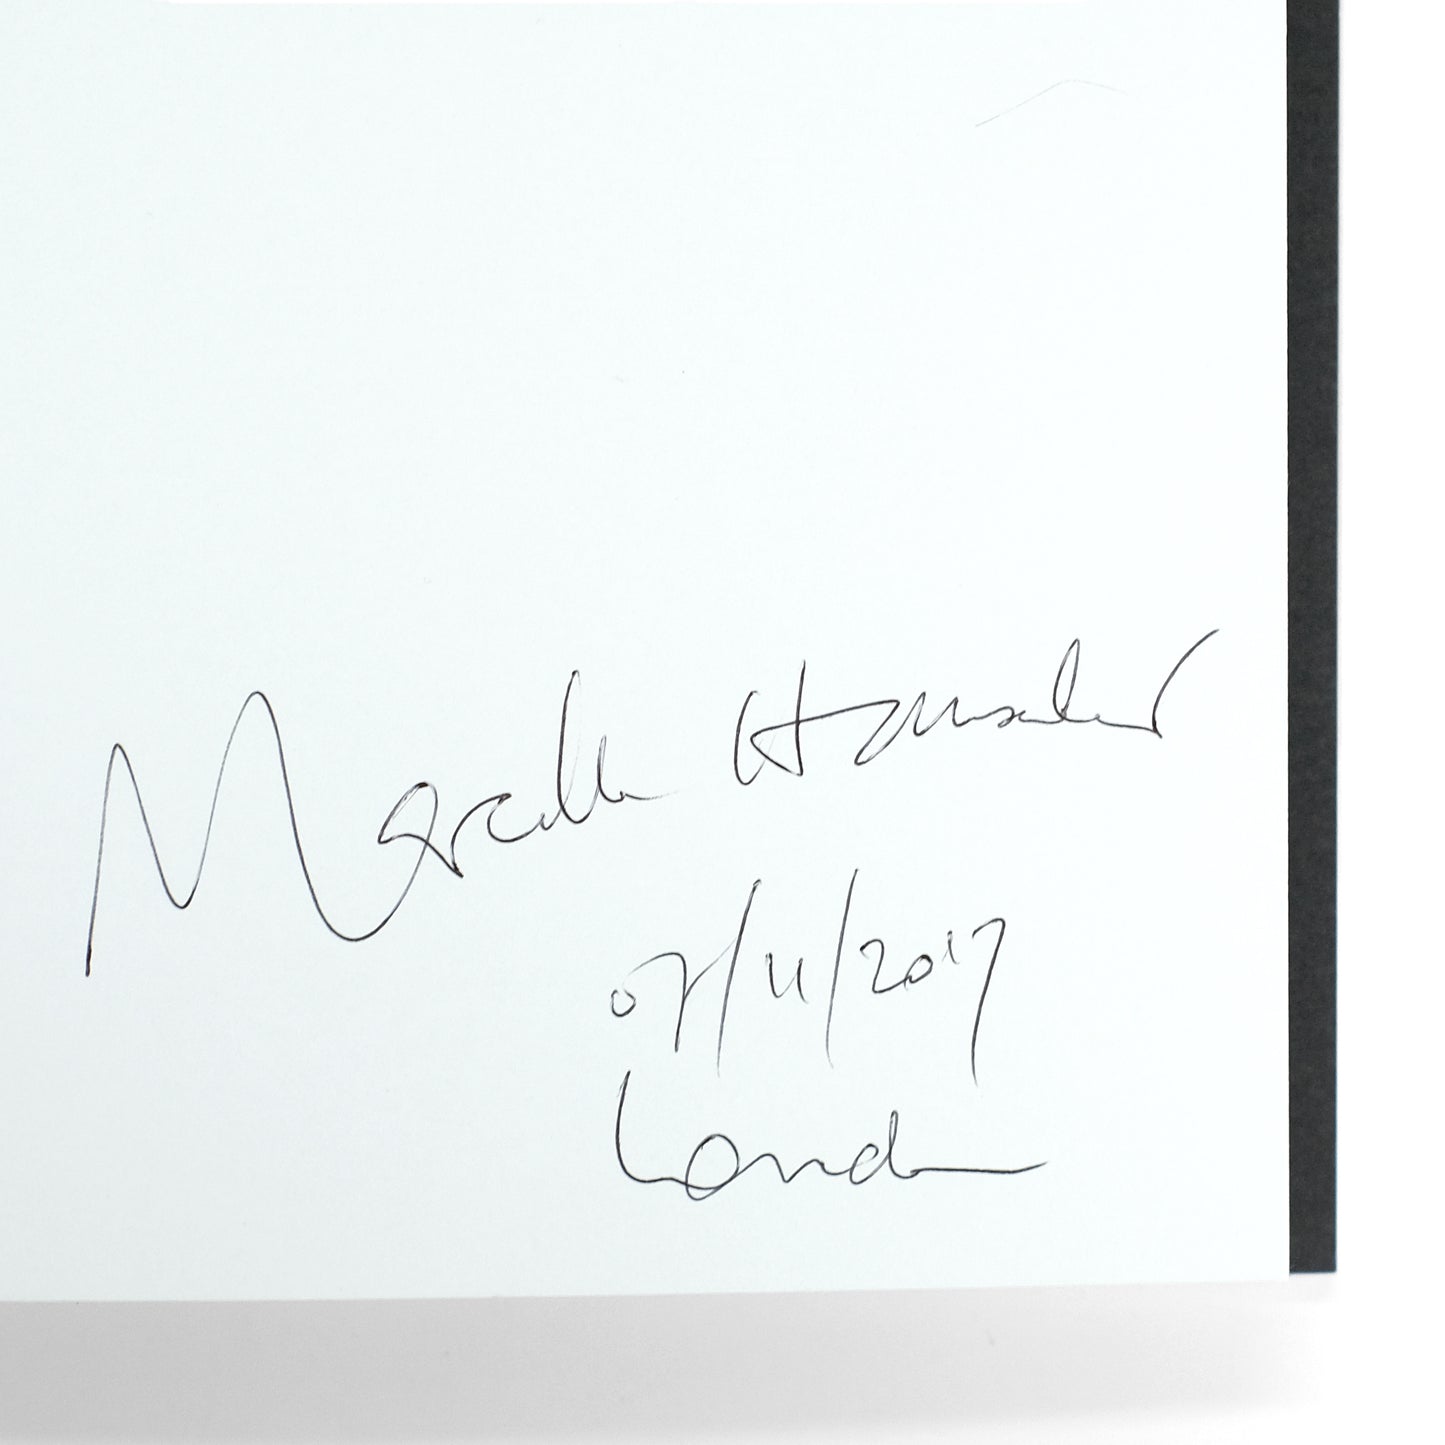 Marcella Hanselaar
07/11/2017
London